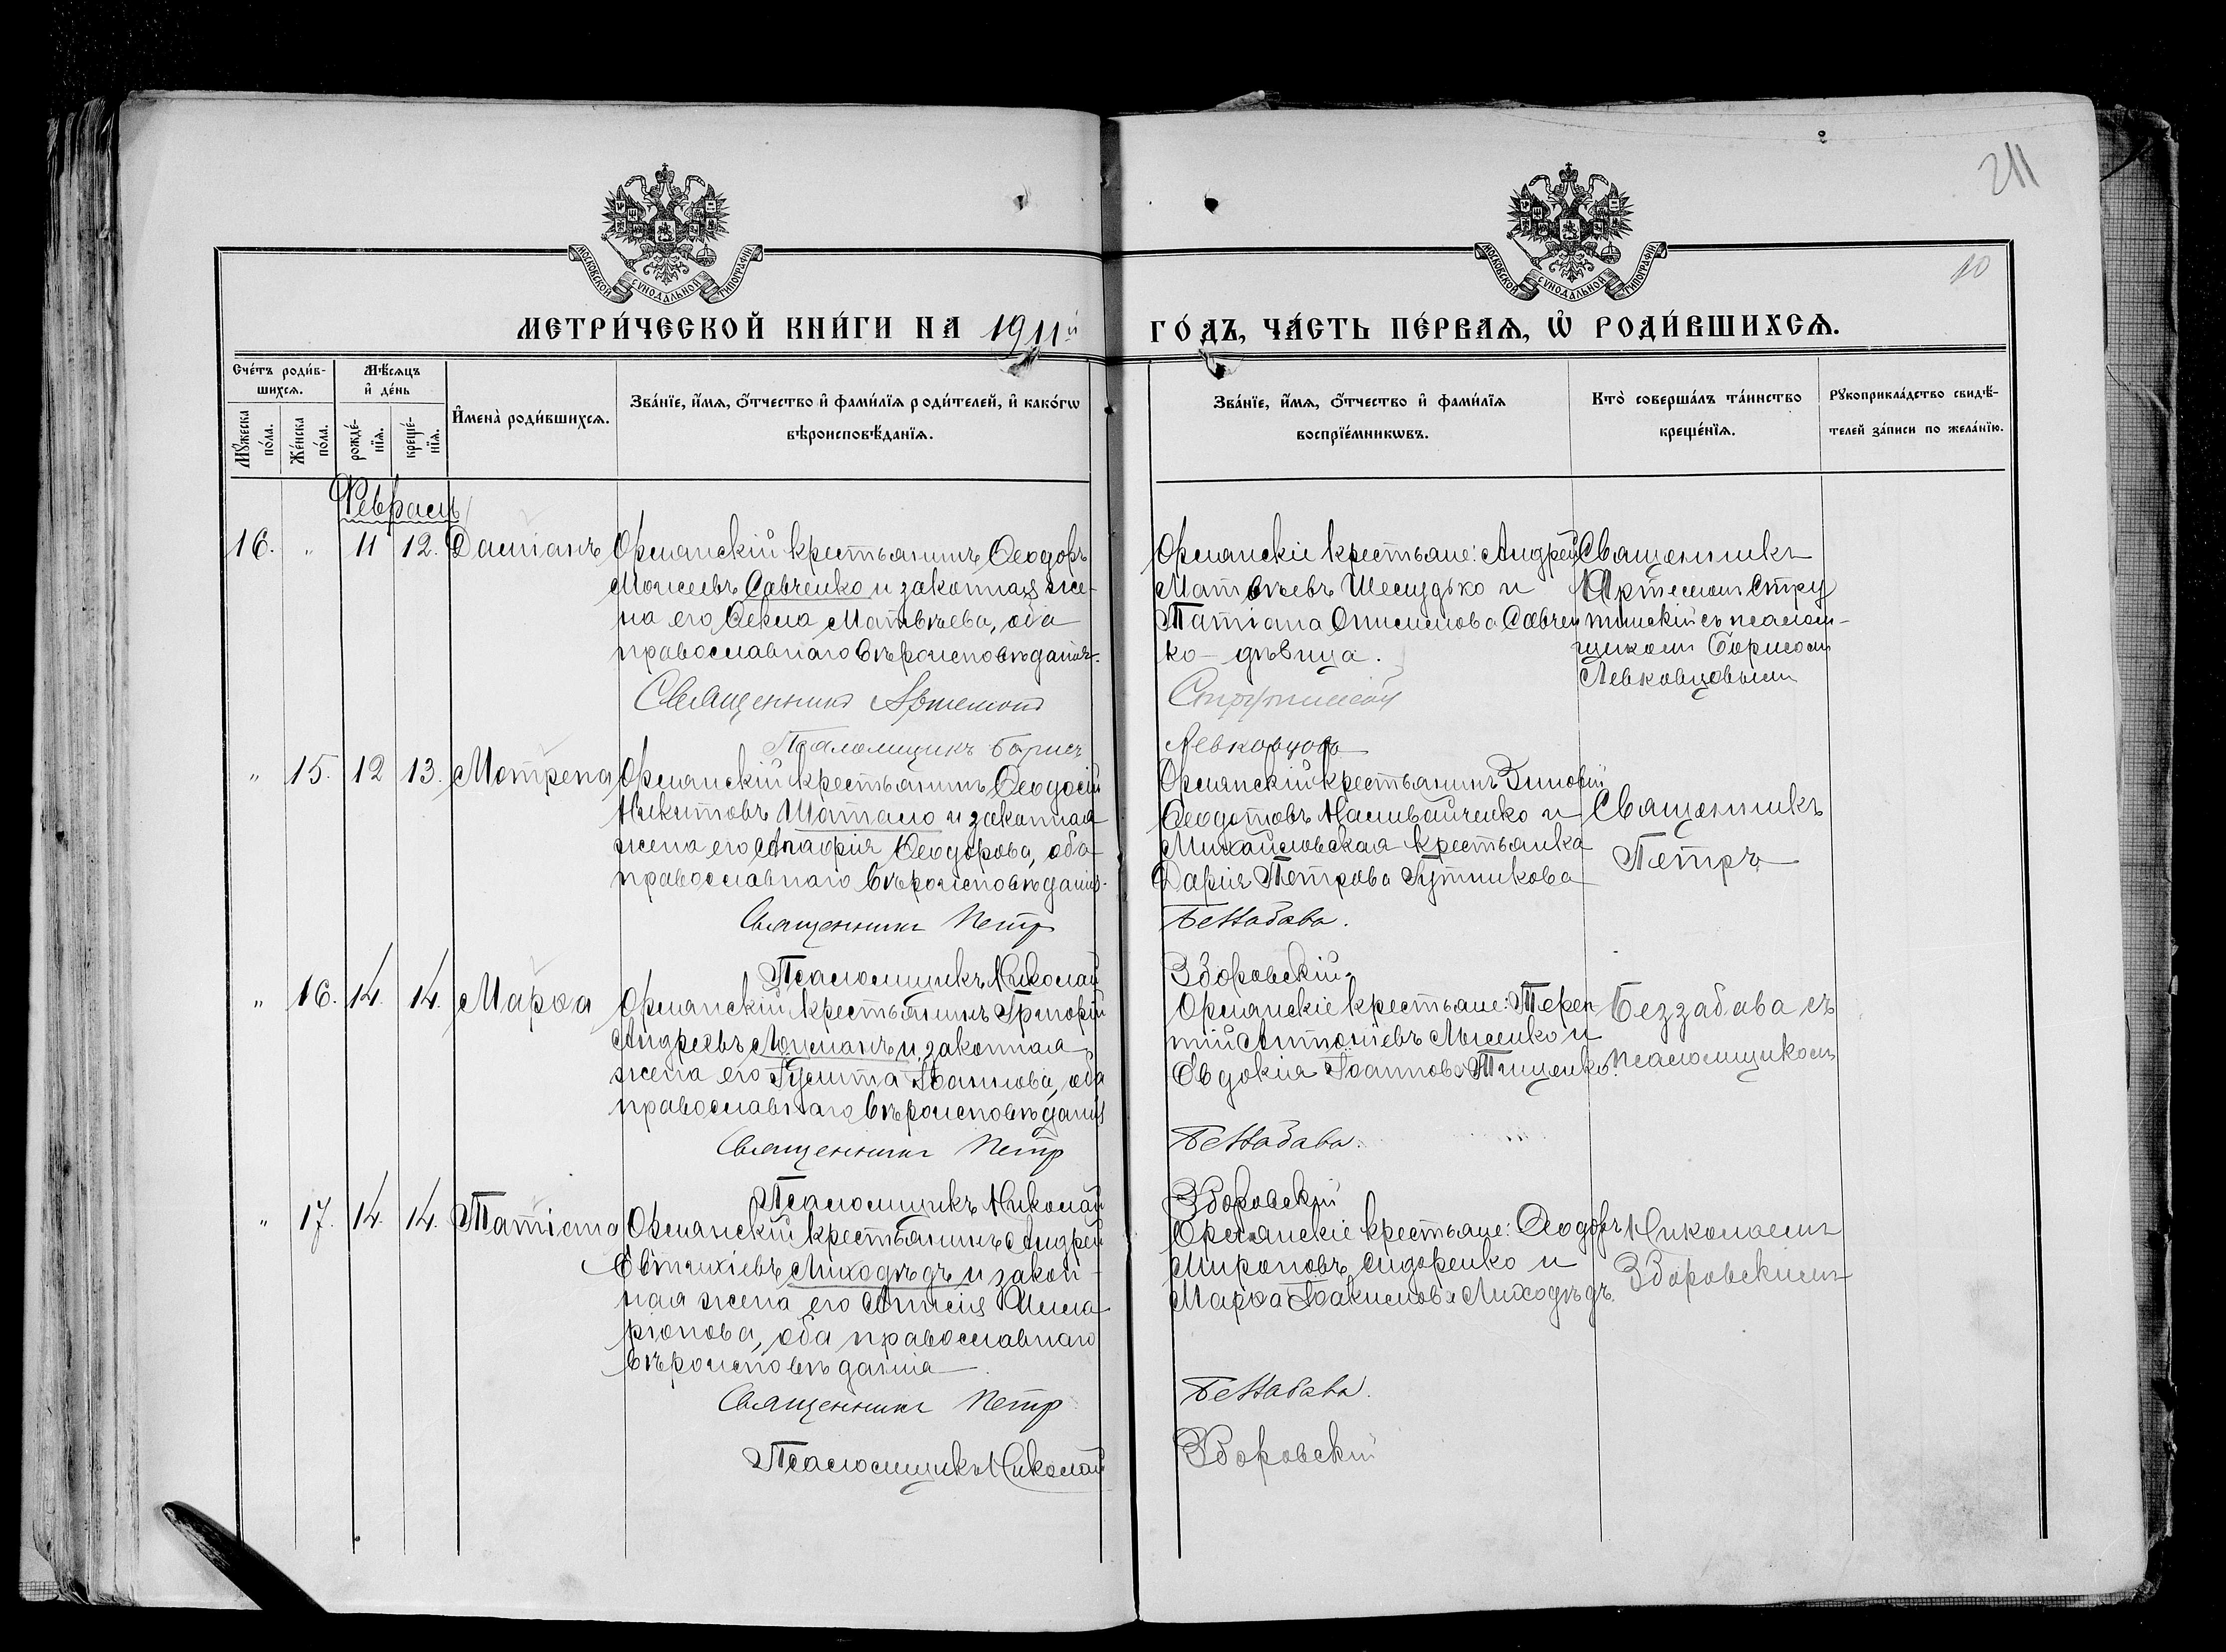 211
10
МОСКОВСКОЙ СѴНОДАЛЬНОЙ ТИПОГРАФІИ
МОСКОВСКОЙ СѴНОДАЛЬНОЙ ТИПОГРАФІИ
МЕТРИ́ЧЕСКОЙ КНИ́ГИ НА 1911й ГО́ДЪ, ЧА́СТЬ ПЕ́РВАѦ, Ѽ РОДИ́ВШИХСѦ.
Сче́тъ роди́в-
шихсѧ.
Мꙋ́жеска
по́ла.
Же́нска
по́ла.
Мѣ́сѧцъ
и҆ де́нь
рожде́-
нїѧ.
креще́-
нїѧ.
И҆мена̀ роди́вшихсѧ.
Зва́нїе, и҆́мѧ, ѻ҆́тчество и҆ фами́лїѧ роди́телей, и҆ како́гѡ
вѣроисповѣ́данїѧ.
Зва́нїе, и҆́мѧ, ѻ҆́тчество и҆ фами́лїѧ
воспрїе́мникѡвъ.
Кто̀ соверша́лъ та́инство
креще́нїѧ.
Рꙋкоприкла́дство свидѣ́-
телей за́писи по жела́нїю.
Февраль
16. " 11 12. Даміанъ
Орманскій крестьянинъ Ѳеодоръ
Моисеевъ Савченко и законная же-
на его Ѳекла Матвѣева, оба
православнаго вѣроисповѣданія.
Священникъ Артемонъ
Псаломщикъ Борисъ
Орманскіе крестьяне: Андрей
Матвѣевъ Шелудько и
Татіана Онисимова Савчен
ко - дѣвица.
Струтинскій
Левковцовъ
Священникъ
Артемонъ Стру
тинскій съ псалом-
щикомъ Борисомъ
Левковцовымъ
" 15. 12 13. Мотрена
Орманскій крестьянинъ Ѳеодосій
Никитовъ Шатало и законная
жена его Агафія Ѳеодорова, оба
православнаго вѣроисповѣданія.
Священникъ Петръ
Псаломщикъ Николай
Орманскій крестьянинъ Зиновій
Ѳеодотовъ Наливайченко и
Михайловская крестьянка
Дарія Петрова Путникова
Беззабава.
Зборовскій
Священникъ
Петръ
" 16. 14. 14. Марѳа
Орманскій крестьянинъ Григорій
Андреевъ Лоцманъ и законная
жена его Іоаннова, оба
православнаго вѣроисповѣданія
Священникъ Петръ
Псаломщикъ Николай
Орманскіе крестьяне: Терен
тій Антоніевъ Лысенко и
Евдокія Іоаннова Тищенко.
Беззабава.
Зборовскій
Беззабава съ
псаломщикомъ
" 17. 14. 14. Татіана
Орманскій крестьянинъ Андрей
Евтихіевъ Лиходѣдъ и закон-
ная жена его Анисія Илла-
ріонова, оба православнаго
вѣроисповѣданія.
Священникъ Петръ
Псаломщикъ Николай
Орманскіе крестьяне: Ѳеодоръ
Мироновъ Сидоренко и
Марѳа Іоакимова Лиходѣдъ.
Беззабава.
Зборовскій
Николаемъ
Зборовскимъ